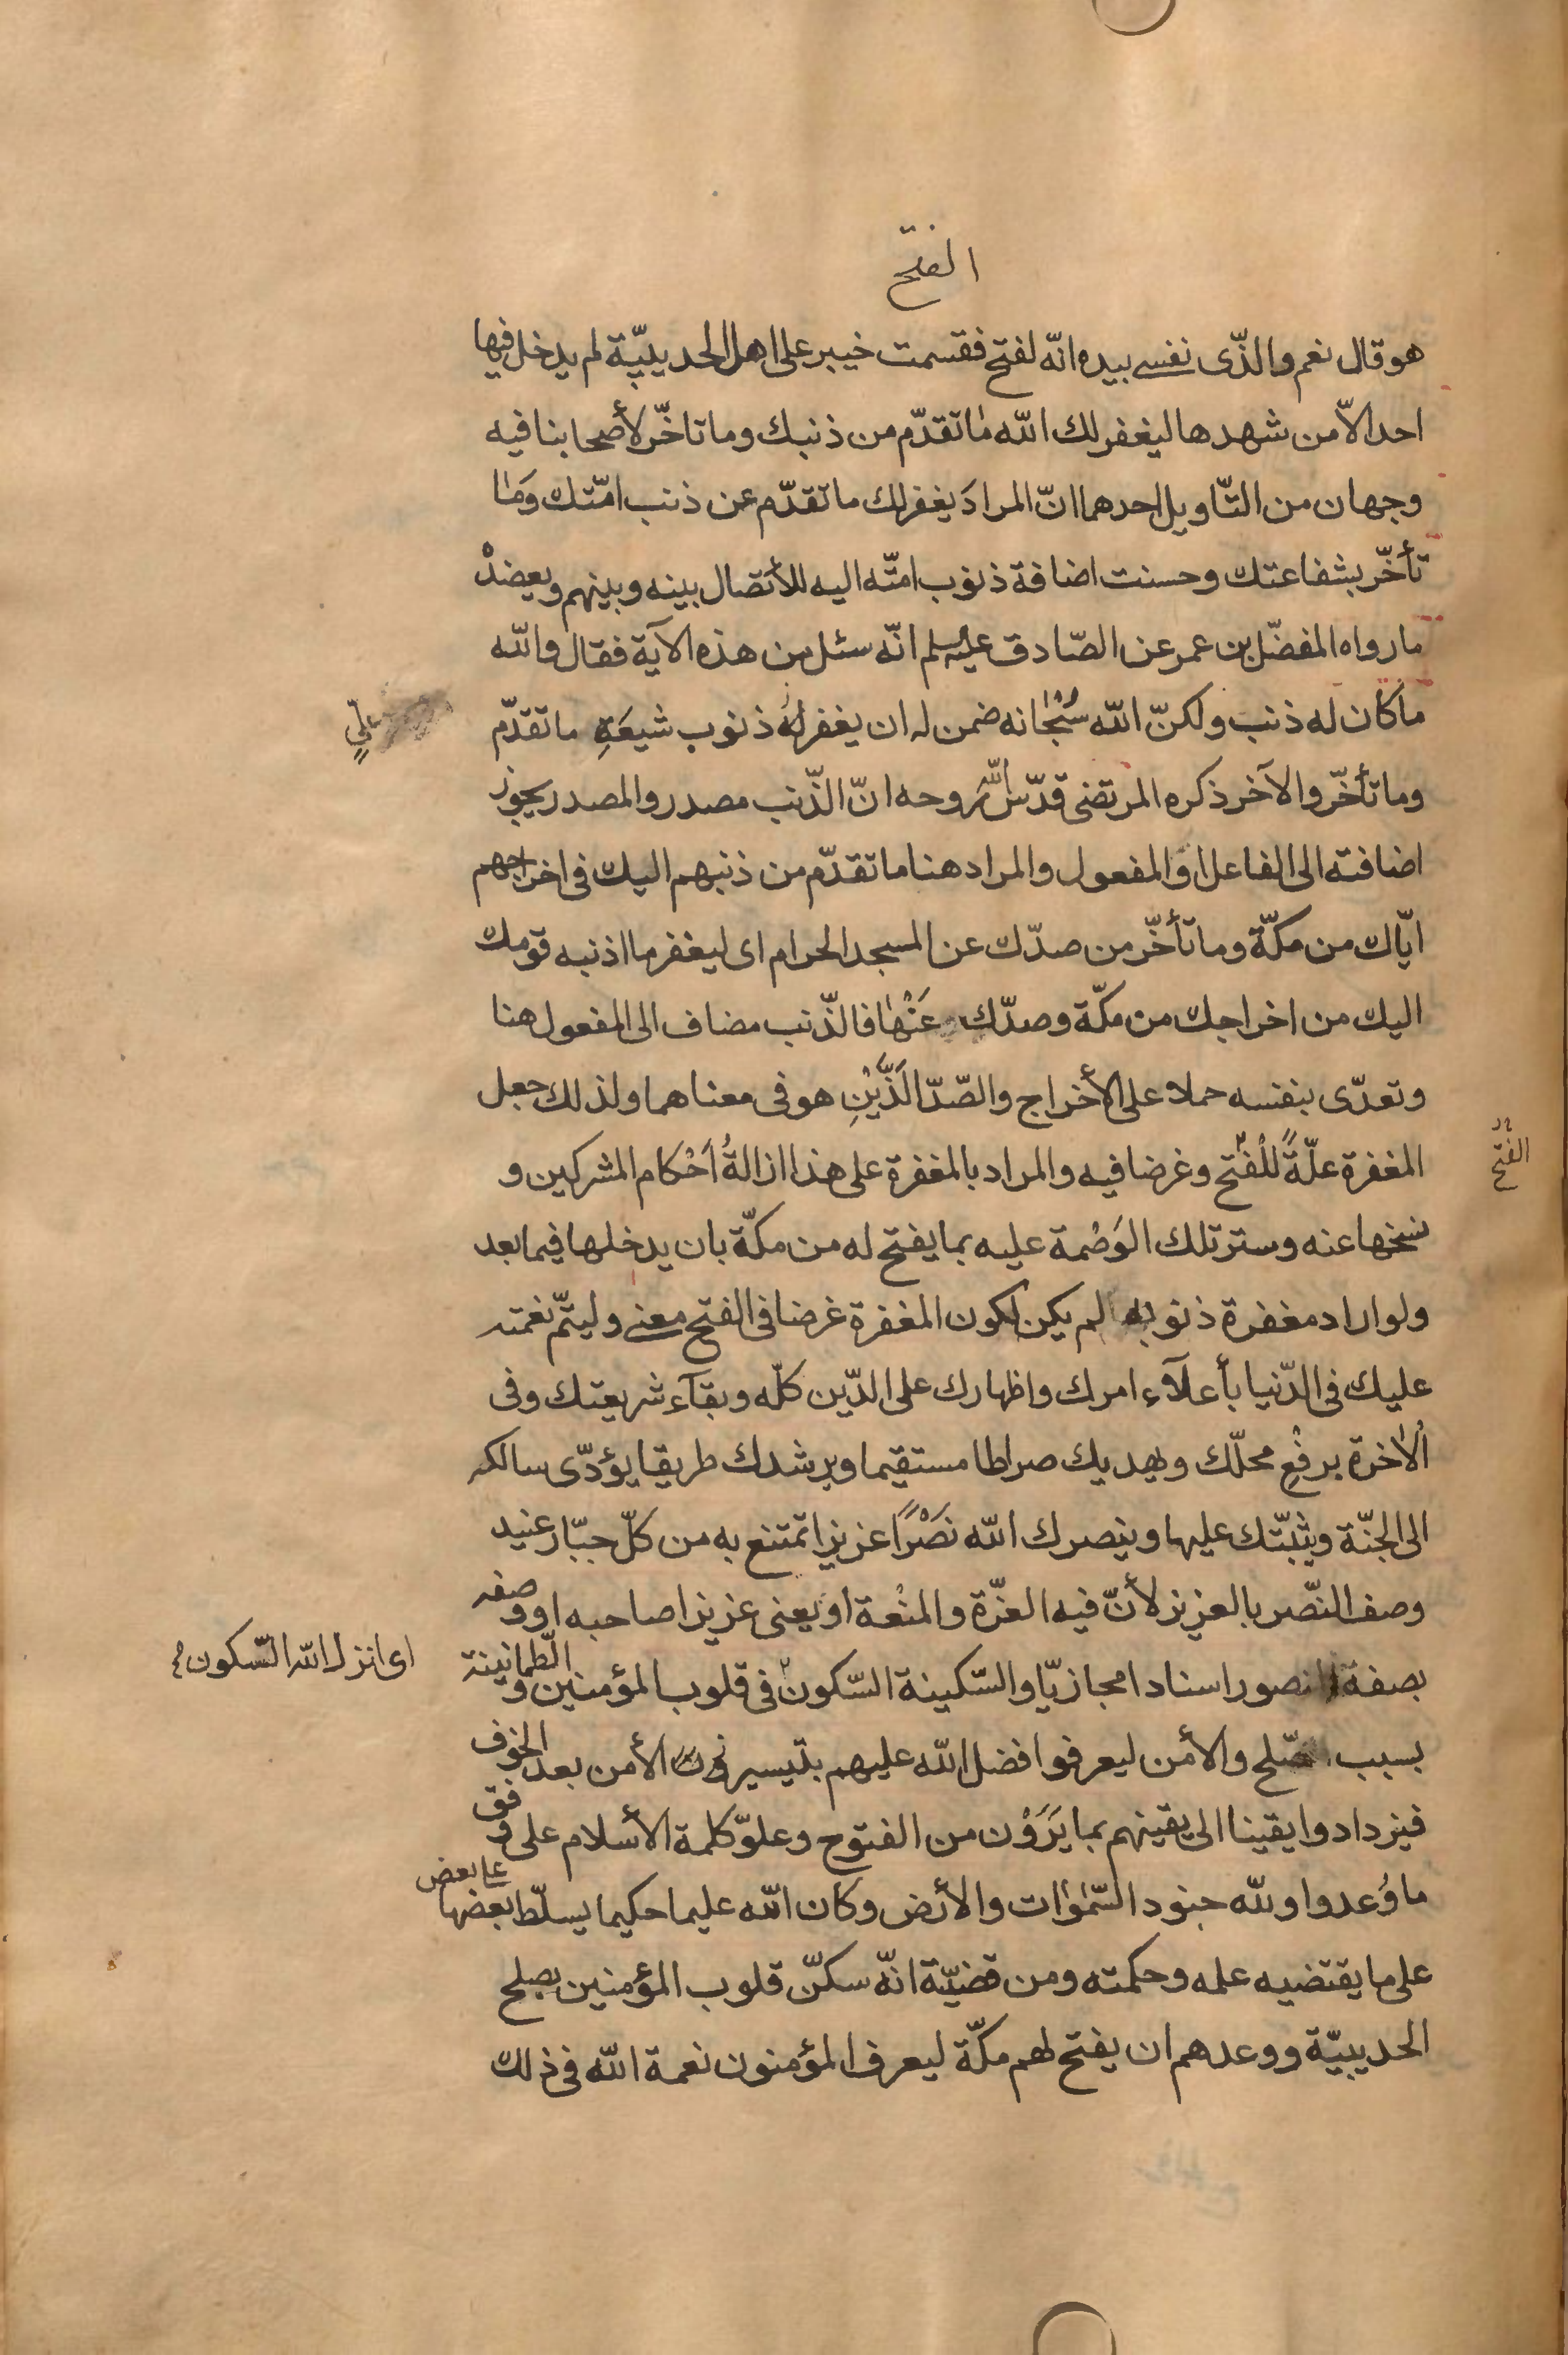 الفتح
هو قال نعم والذّى نفسے بيده انّه لفتح فقسمت خيبر على اهل الحديبيّة لم يدخل فيها
احد الاّ من شهدها ليغفر لك الله ما تقدّم من ذنبك وما تاخّر لأصحابنا فيه
وجهان من التّاويل احدهما انّ المرادَ يغفر لك ما تقدّم عن ذنب امّتك وَمٰا
تأخّر بشفاعتك وحسنت اضافة ذنوب امتّه اليه للأتّصال بينه وبينهم ويعضدْ
ما رواه المفضّل بن عمر عن الصّادق عليه سلم انّه سئل من هذه الآية فقال والله
ما كان له ذنب ولكنّ الله سُبْحٰانه ضمن له ان يغفر لهُ ذنوب شيعَةِ ما تقدّم
علیٍّ
وما تأخّر والآخر ذكره المرتضى قدّس اللّٰه روحه انّ الذّنب مصدر والمصدر يجوز
اضافته الى الفاعل او المفعول والمراد هنا ما تقدّم من ذنبهم اليك فى اخراجهم
ايّاك من مكّة وما تأخّر من صدّك عن المسجد الحرام اى ليغفر ما اذنبه قومك
اليك من اخراجك من مكّة وصدّك عَنْهٰا فالذّنب مضاف الى المفعول هنا
وتعدّى بنفسه حملا على الأخراج والصّدّ الَذَّيْنِ هو فى معناهما ولذلك جعل
المغفرة علّةً للْفتْح وغرضا فيه والمراد بالمغفرة على هذا ازالةُ اَحْكام المشركين و
الفتح
نسخها عنه وستر تلك الوَصْمة عليه بما يفتح له من مكّة بان يدخلها فيما بعد
ولو اراد مغفرة ذنوبه لم يكن لكون المغفرة غرضا فى الفتح معنے وليتمّ نعمته
عليك فى الدّنيا بأعلآء امرك واظهارك على الدّين كلّه وبقآء شريعتك وفى
الاٰخرة برفْعِ محلّك ويهديك صراطا مستقيما ويرشدك طريقا يؤدّى سالكه
الى الجنّة ويثبّتك عليها وينصرك الله نَصْرًا عزيزا تمتنع به من كلّ جبّار عنيد
وصف النّصر بالعزيز لأنّ فيه العزّة والمنْعة او يعنى عزيزا صاحبه او وصفه
بصفة المنصور اسنادا مجازيّا والسّكينة السّكون فى قلوب المؤمنين و الطّمانينة
اى انزل الله السّكون
بسبب الصّلح والأمن ليعرفوا فضل الله عليهم بتيسير الأمن بعد الخوف
فيزدادوا يقينا الى يقينهم بما يَرَوْن من الفتوح وعلوّ كلمة الأسلام على وفق
ما وُعدوا ولله جنود السّمٰوٰات والأرض وكان الله عليما حكيما يسلّط بعضها علے بعض
على ما يقتضيه علمه وحكمته ومن قضيّة انّه سكنّ قلوب المؤمنين بصلح
الحديبيّة ووعدهم ان يفتح لهم مكّة ليعرف المؤمنون نعمة الله فى ذلك